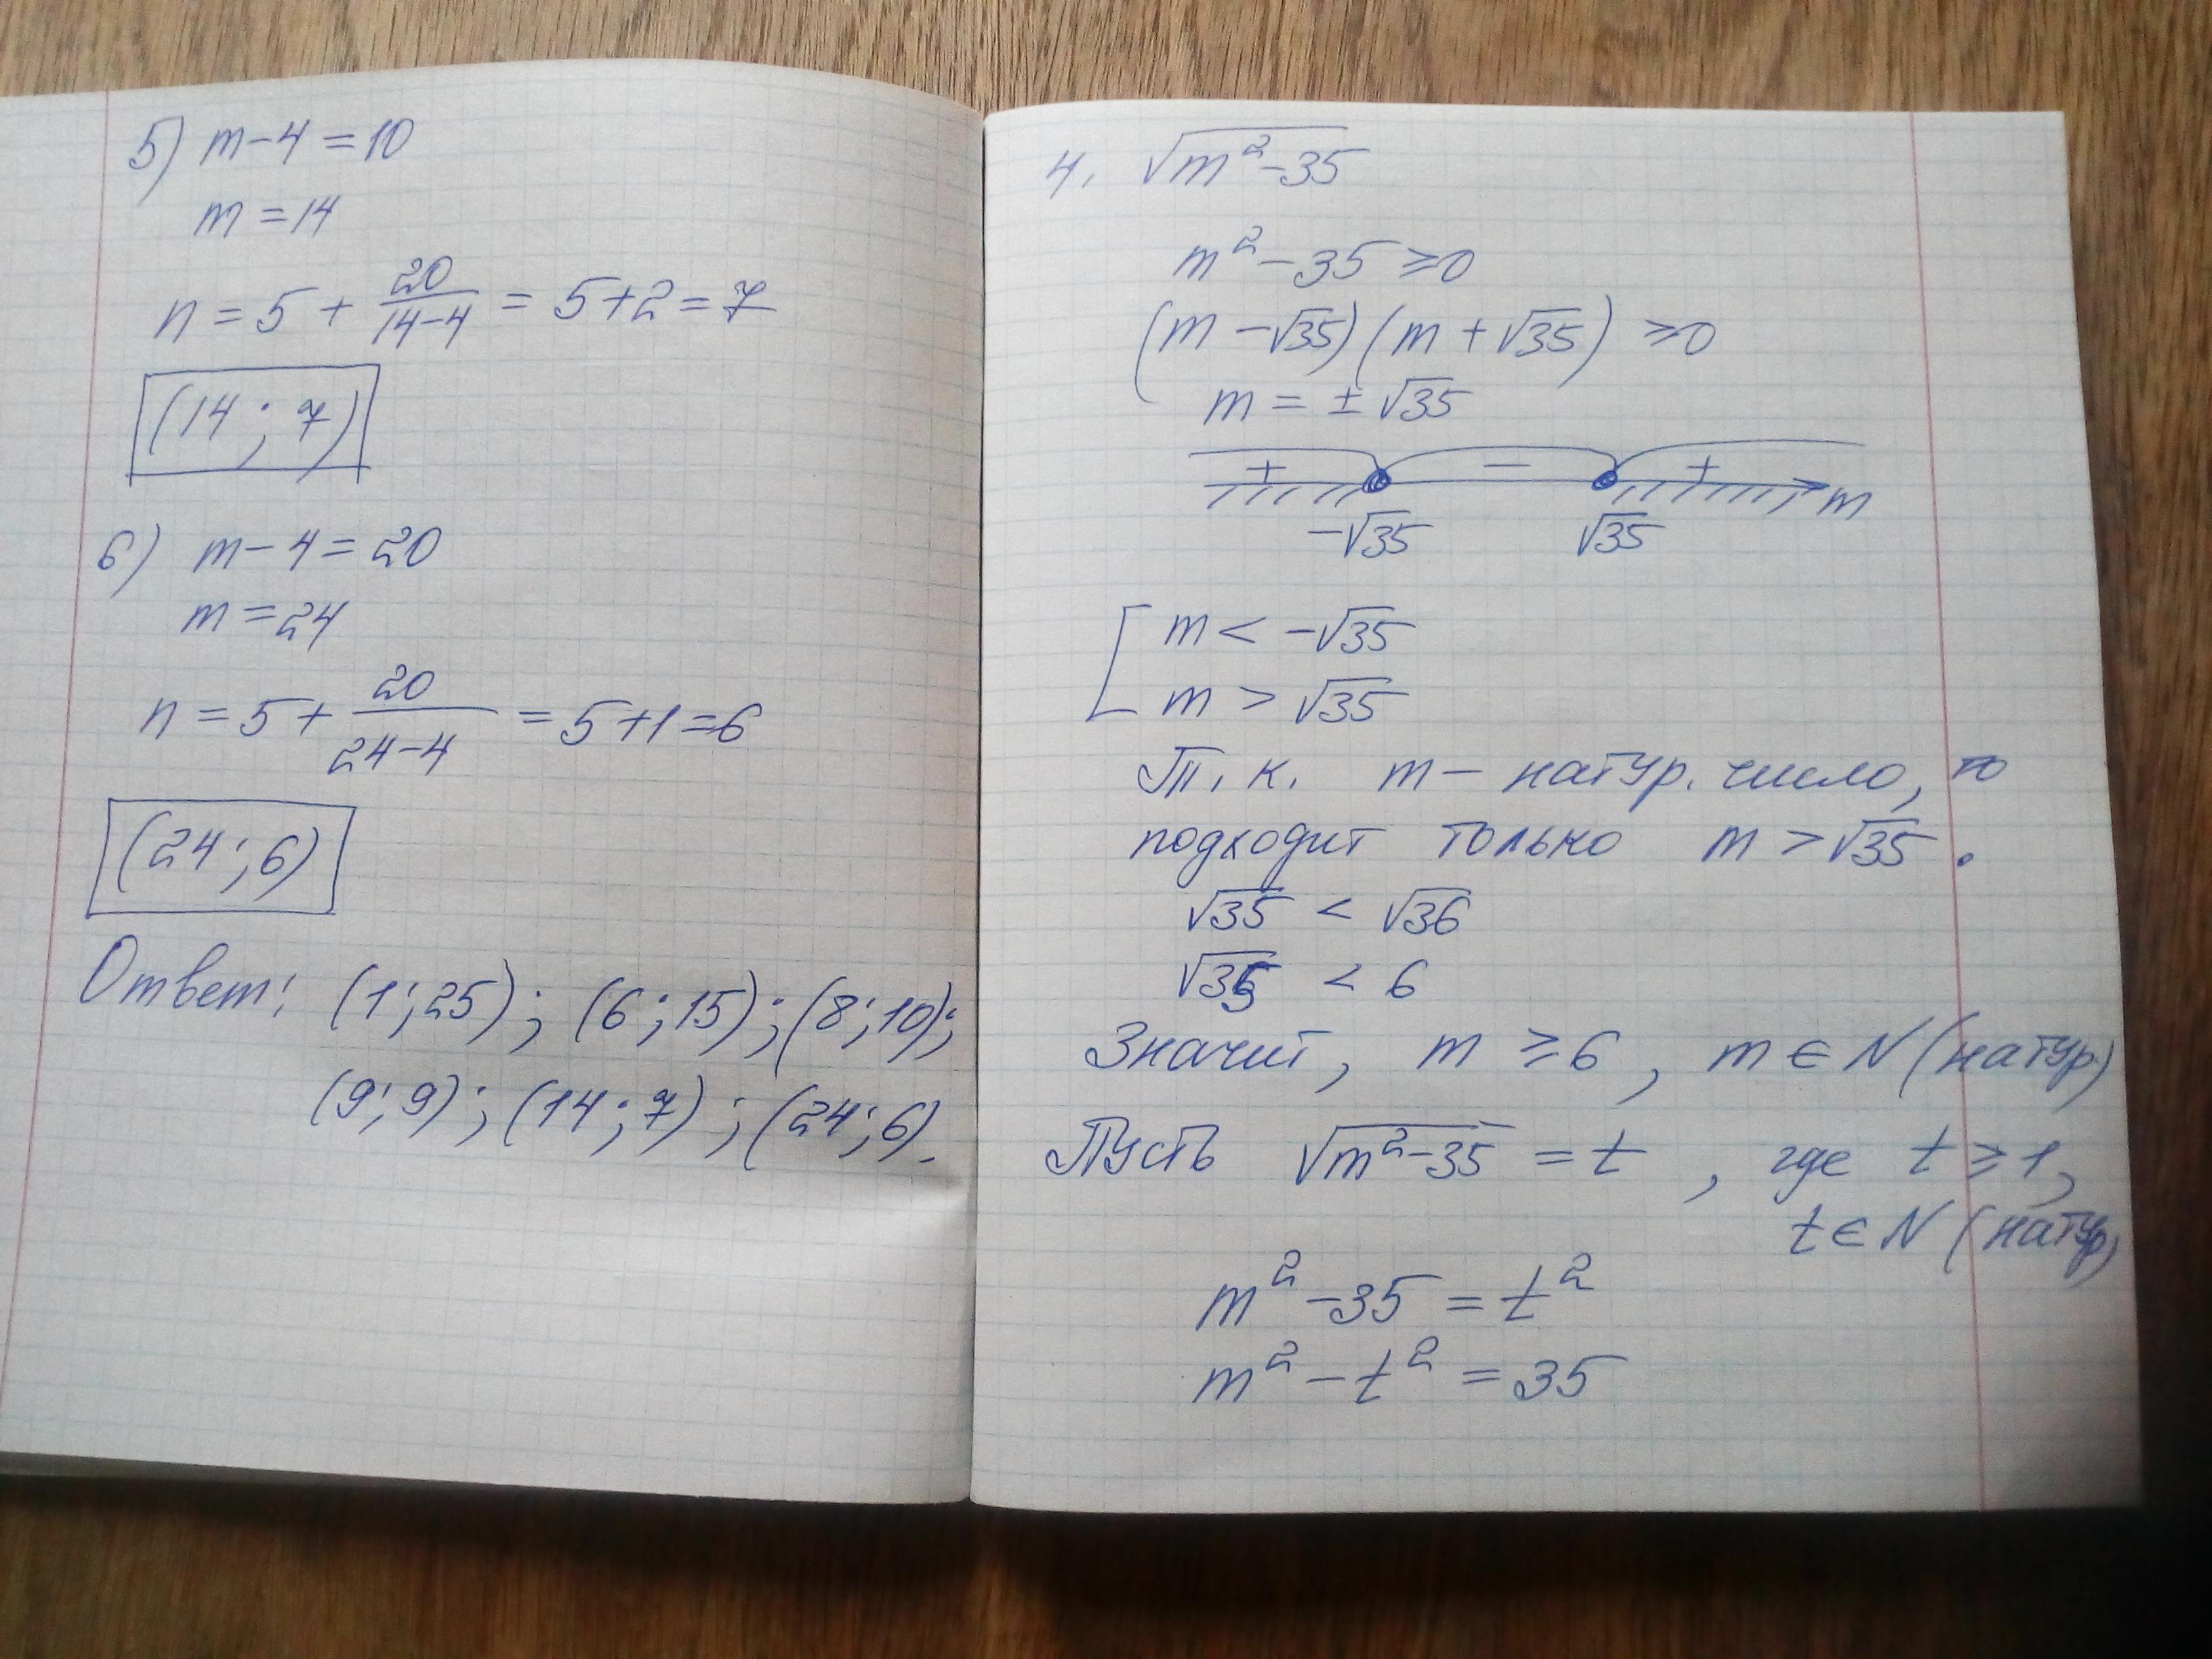 5) m-4=10
m=14
n = 5 + 20/(14-4) = 5+2=7
(14; 7)
6) m-4=20
m=24
n = 5 + 20/(24-4) = 5+1=6
(24; 6)
Ответ: (1; 25); (6; 15); (8; 10);
(9; 9); (14; 7); (24; 6).
4. √(m²-35)
m²-35 ≥0
(m-√35)(m+√35) ≥0
m = ± √35
+ - + m
-√35 √35
[ m < -√35
m > √35
Т. к. m - натур. число, то
подходит только m > √35.
√35 < √36
√35 < 6
Значит, m ≥6, m ∈ N (натур)
Пусть √(m²-35) = t, где t ≥ 1,
t ∈ N (натур)
m²-35 = t²
m²-t² = 35